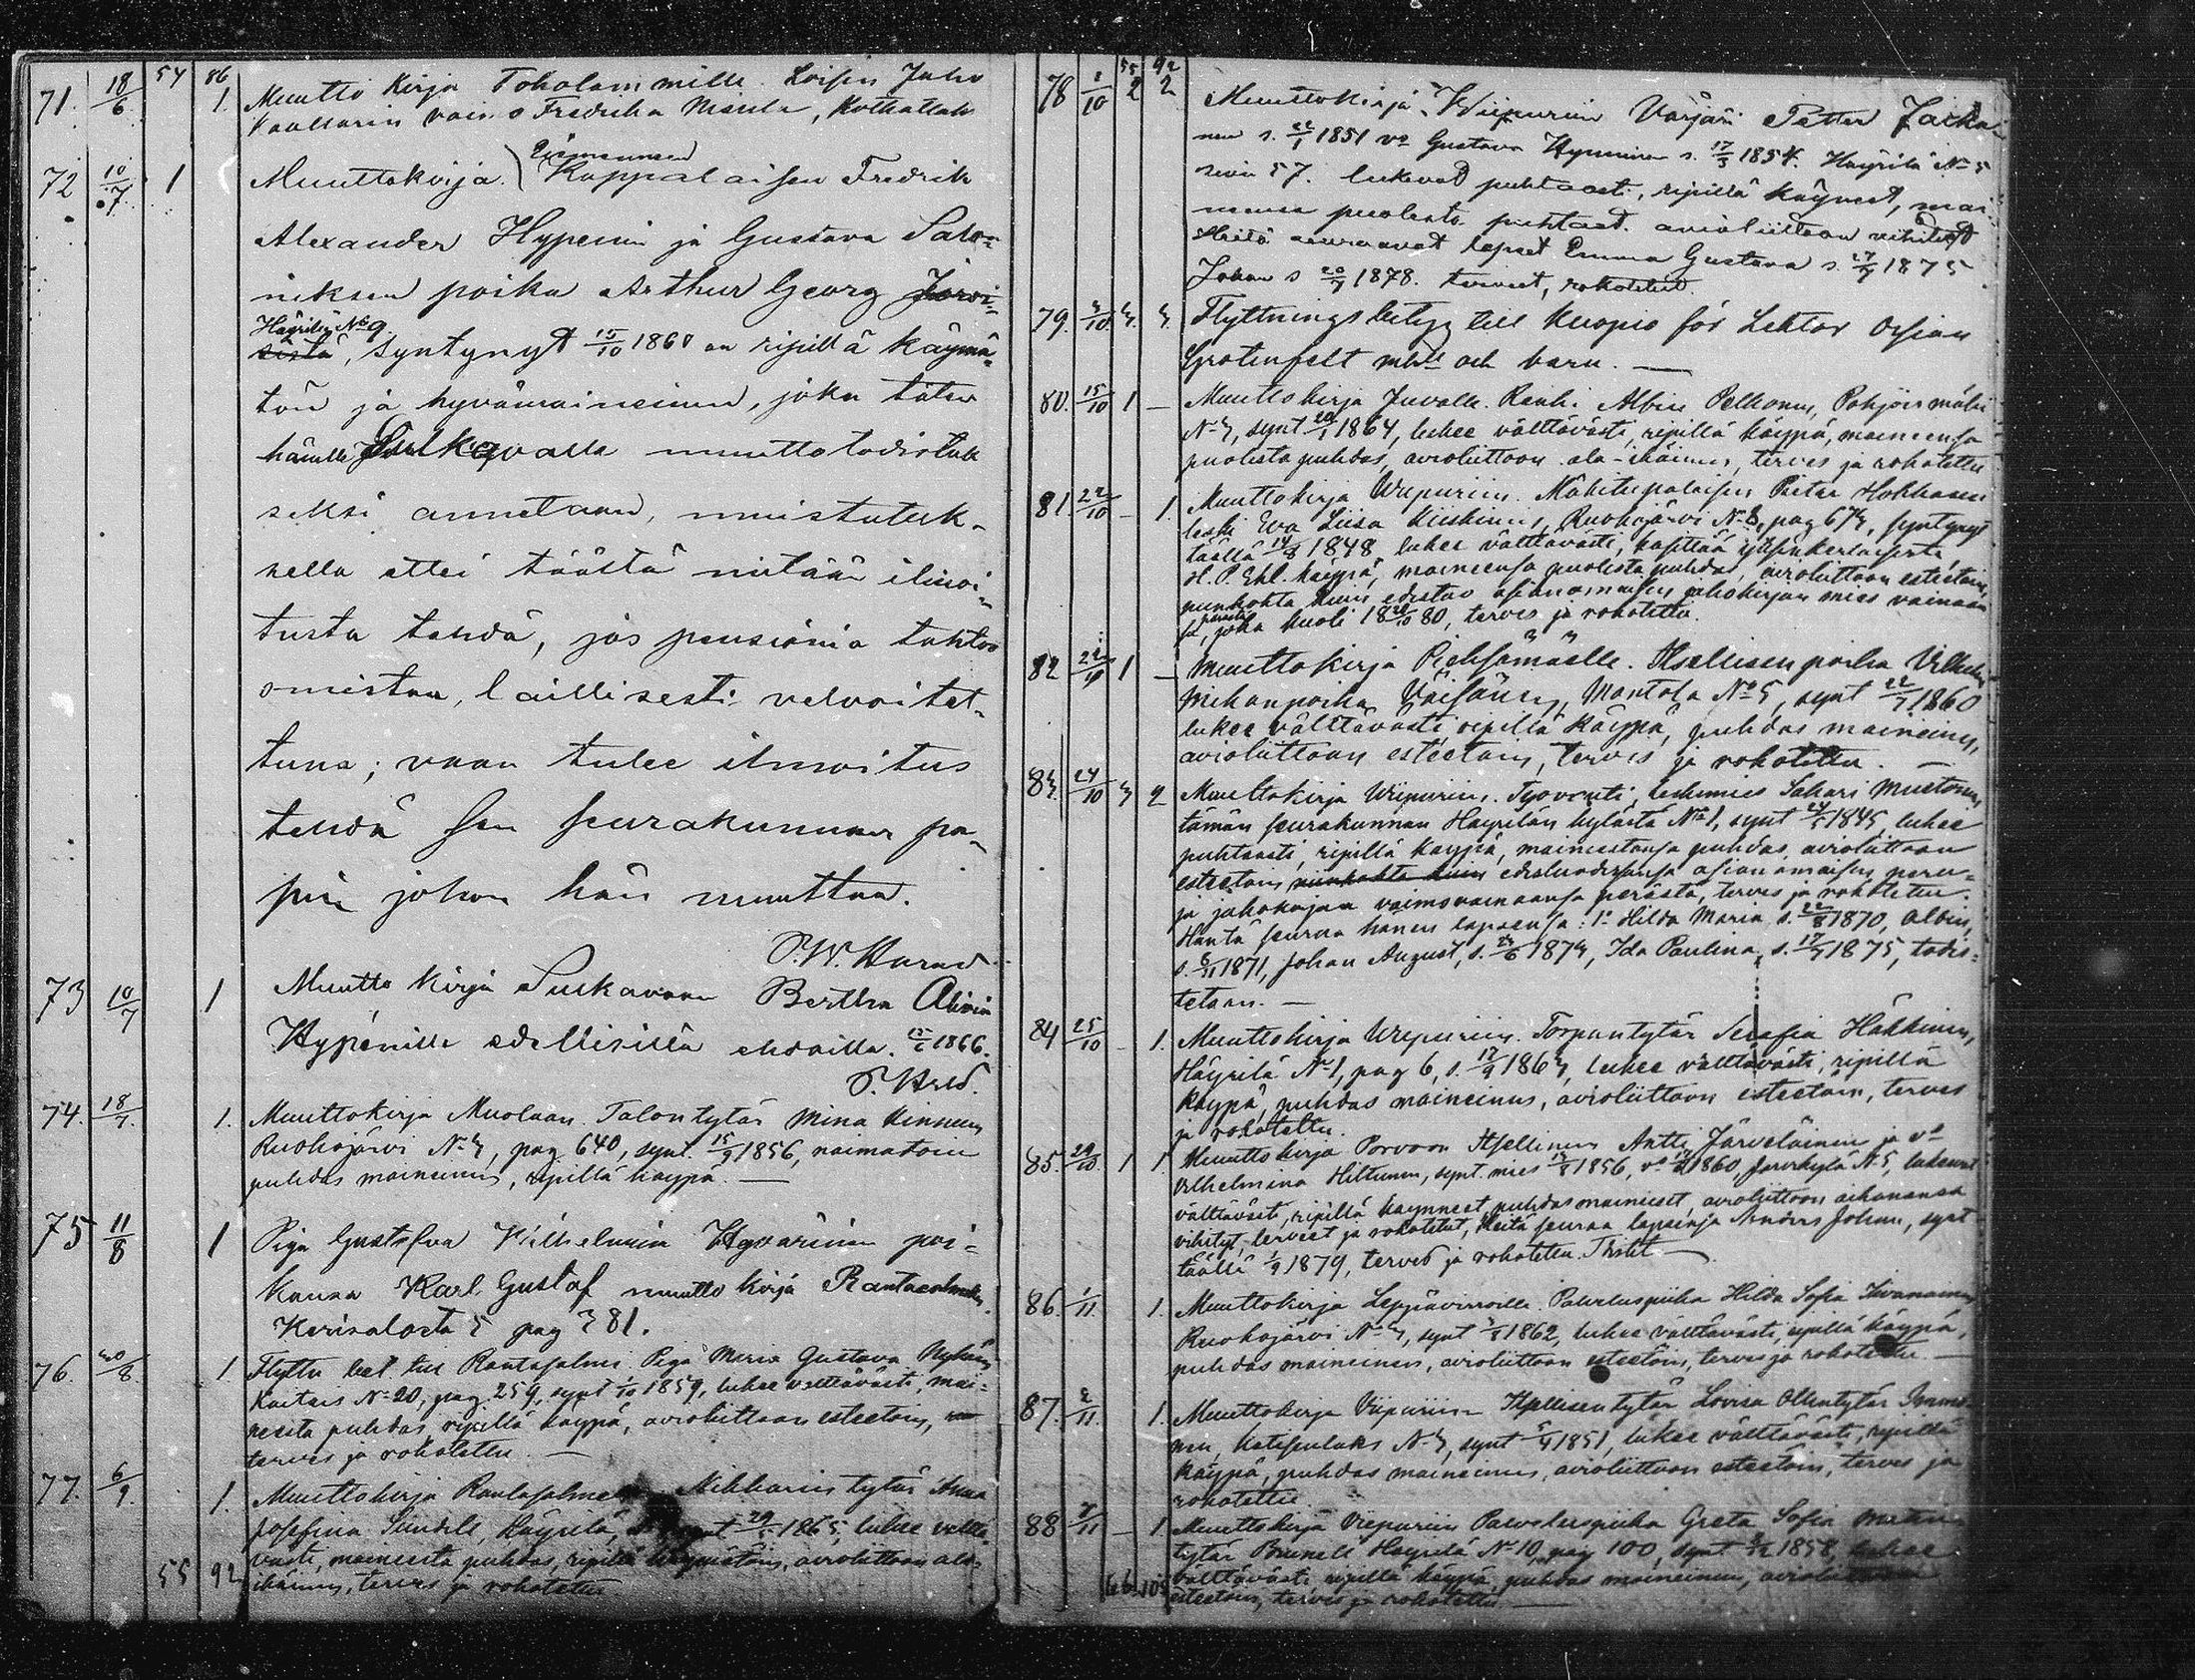 54 86
71. 18/6 1. Muutto kirja Toholammille. Loisen Juho
vaimo Fredrika
72 10/7 1 Muuttokirja. Kappalaisen Fredrik
Alexander Hypenin ja Gustava Salo-
niuksen poika Arthur Georg
Häyrilä No 9.
syntynyt 15/10 1860 on ripillä käymä-
tön ja hyvämaineinen, joka täten
hänelle Sulkavalle muuttotodistuk
seksi annetaan, muistutuk-
sella ettei täästä mitään ilmoi-
tusta tehdä, jos pensionia tahtoo
omistaa, laillisesti velvoitet-
tuna; vaan tulee ilmoitus
tehdä sen seurakunnan pa-
pin johon hän muuttaa.
73 10/7 1 Muutto kirja Sulkavaan Bertha
Hypénille edellisillä ehdoilla. 1866.
74. 18/7. 1. Muuttokirja Muolaan Talontytär Mina Kinnunen
Ruokojärvi No 3, pag 640, synt. 15/9 1856, naimatoin
puhdas maineinen, ripillä käypä. —
75 11/8 1 Piga Gustafva Vilhelmina Hyvärinen poi-
kansa Karl Gustaf muutto kirja
Kerisalosta 5 pag 381.
76. 30/8 1. Flyttn bet. till Rantasalmi. Piga Maria Gustava
No 20, pag. 259, synt 1/10 1859, lukee välttävästi, mai-
neesta puhdas, ripillä käypä, avioliittoon esteetöin,
terves ja rokotettu. —
77. 6/9. 1. Muuttokirja Nikkarin tytär Anna
Josefina Sundell, Häyrilä, 1865, lukee vält
västi, maineesta puhdas, ripillä käymätöin, avioliittoon ala-
ikäinen, terves ja rokotettu
55 92
55 92
78 /10 2 2 Muuttokirja Wiipuriin Värjäri Petter
nen s. 22/1 1851 vo Gustava Hynninen s. 17/3 1854. Häyrilä No 5
sivu 57. lukevat puhtaasti, ripillä käyneet, mai
neensa puolesta puhtaat. avioliittoon vihityt
Heitä seuraavat lapset Emma Gustava s. 1875
Johan s 1878. terveet, rokotetut.
79. 3/10. 3. 3. Flyttningsbetyg till Kuopio för Lektor Ossian
Grotenfelt med och barn. —
80. 15/10 1 — Muuttokirja Juvalle. Renki Albin Pelkonen,
No 3, synt 20/1 1864, lukee välttävästi, ripillä käypä, maineensa
puolesta puhdas, avioliittoon ala-ikäinen, terves ja rokotettu
81. 22/10 — 1. Muuttokirja Wiipuriin. Mäkitupalaisen Petter Hokkasen
leski Eva Liisa Kiiskinen, Ruokojärvi No 8, pag 673, syntynyt
täällä 14/8 1848, lukee välttävästi, käsittää
H. P. Ehl. käypä, maineensa puolesta puhdas, avioliittoon esteetöin,
mies vainaan
joka kuoli 18 20/10 80, terves ja rokotettu.
82 1 — Muuttokirja Pieksämäelle. Itsellisen poika Vilhelm
Mikonpoika Väisänen, Montola No 5, synt 22/7 1860
lukee välttävästi, ripillä käypä, puhdas maineinen,
avioliittoon esteetöin, terves ja rokotettu. —
83. 24/10 3 2 Muuttokirja Wiipuriin. Työvouti, leskimies Sakari Mustonen
tämän seurakunnan Häyrilän kylästä No 1, synt 1845, lukee
puhtaasti, ripillä käypä, maineestansa puhdas, avioliittoon
esteetöin asianomaisen peru-
ja jakokirjan vaimovainaansa perästä, terves ja rokotettu.
Häntä seuraa hänen lapsensa: 1o Hilda Maria s. 22/8 1870, Albin,
s. 6/11 1871, Johan August, s. 1873, Ida Paulina, s. 1875, todis-
tetaan. —
84 25/10 1. Muuttokirja Wiipuriin. Torpantytär Serafia Häkkinen,
Häyrilä No 1, pag 6, s. 17/9 1863, lukee välttävästi, ripillä
käypä, puhdas maineinen, avioliittoon esteetöin, terves
ja rokotettu.
85. 29/10. 1 1 Muuttokirja Porvoon Itsellinen Antti Järveläinen ja vo
Vilhelmina Hiltunen, synt. mies 1856, vo 1860, Järvikylä No 5, lukevat
välttäväst, ripillä käynneet, puhdas maineiset, avioliittoon aikanansa
vihityt, terveet ja rokotetut, Heitä seuraa lapsensa Anders Johan, synt
täällä 1/9 1879, terved ja rokotettu. —
86. 1/11. 1. Muuttokirja Leppävirroille. Palveluspiika Hilda Sofia
Ruokojärvi No 3, synt 1862, lukee välttävästi, ripillä käypä,
puhdas maineinen, avioliittoon esteetöin, terves ja rokotettu —
87. 2/11. 1. Muuttokirja Viipuriin Itsellisen tytär Lovisa Ollintytär Immo
nen, No 3, synt 1851, lukee välttävästi, ripillä
käypä, puhdas maineinen, avioliittoon esteetöin, terves ja
rokotettu.
88 /11 — 1. Muuttokirja Viipuriin Palveluspiika Greta Sofia
tytär Brunell Häyrilä No 10, pag 100, synt 1858, lukee
välttävästi ripillä käypä, puhdas maineinen,
esteetöin, terves ja rokotettu. —
66 105